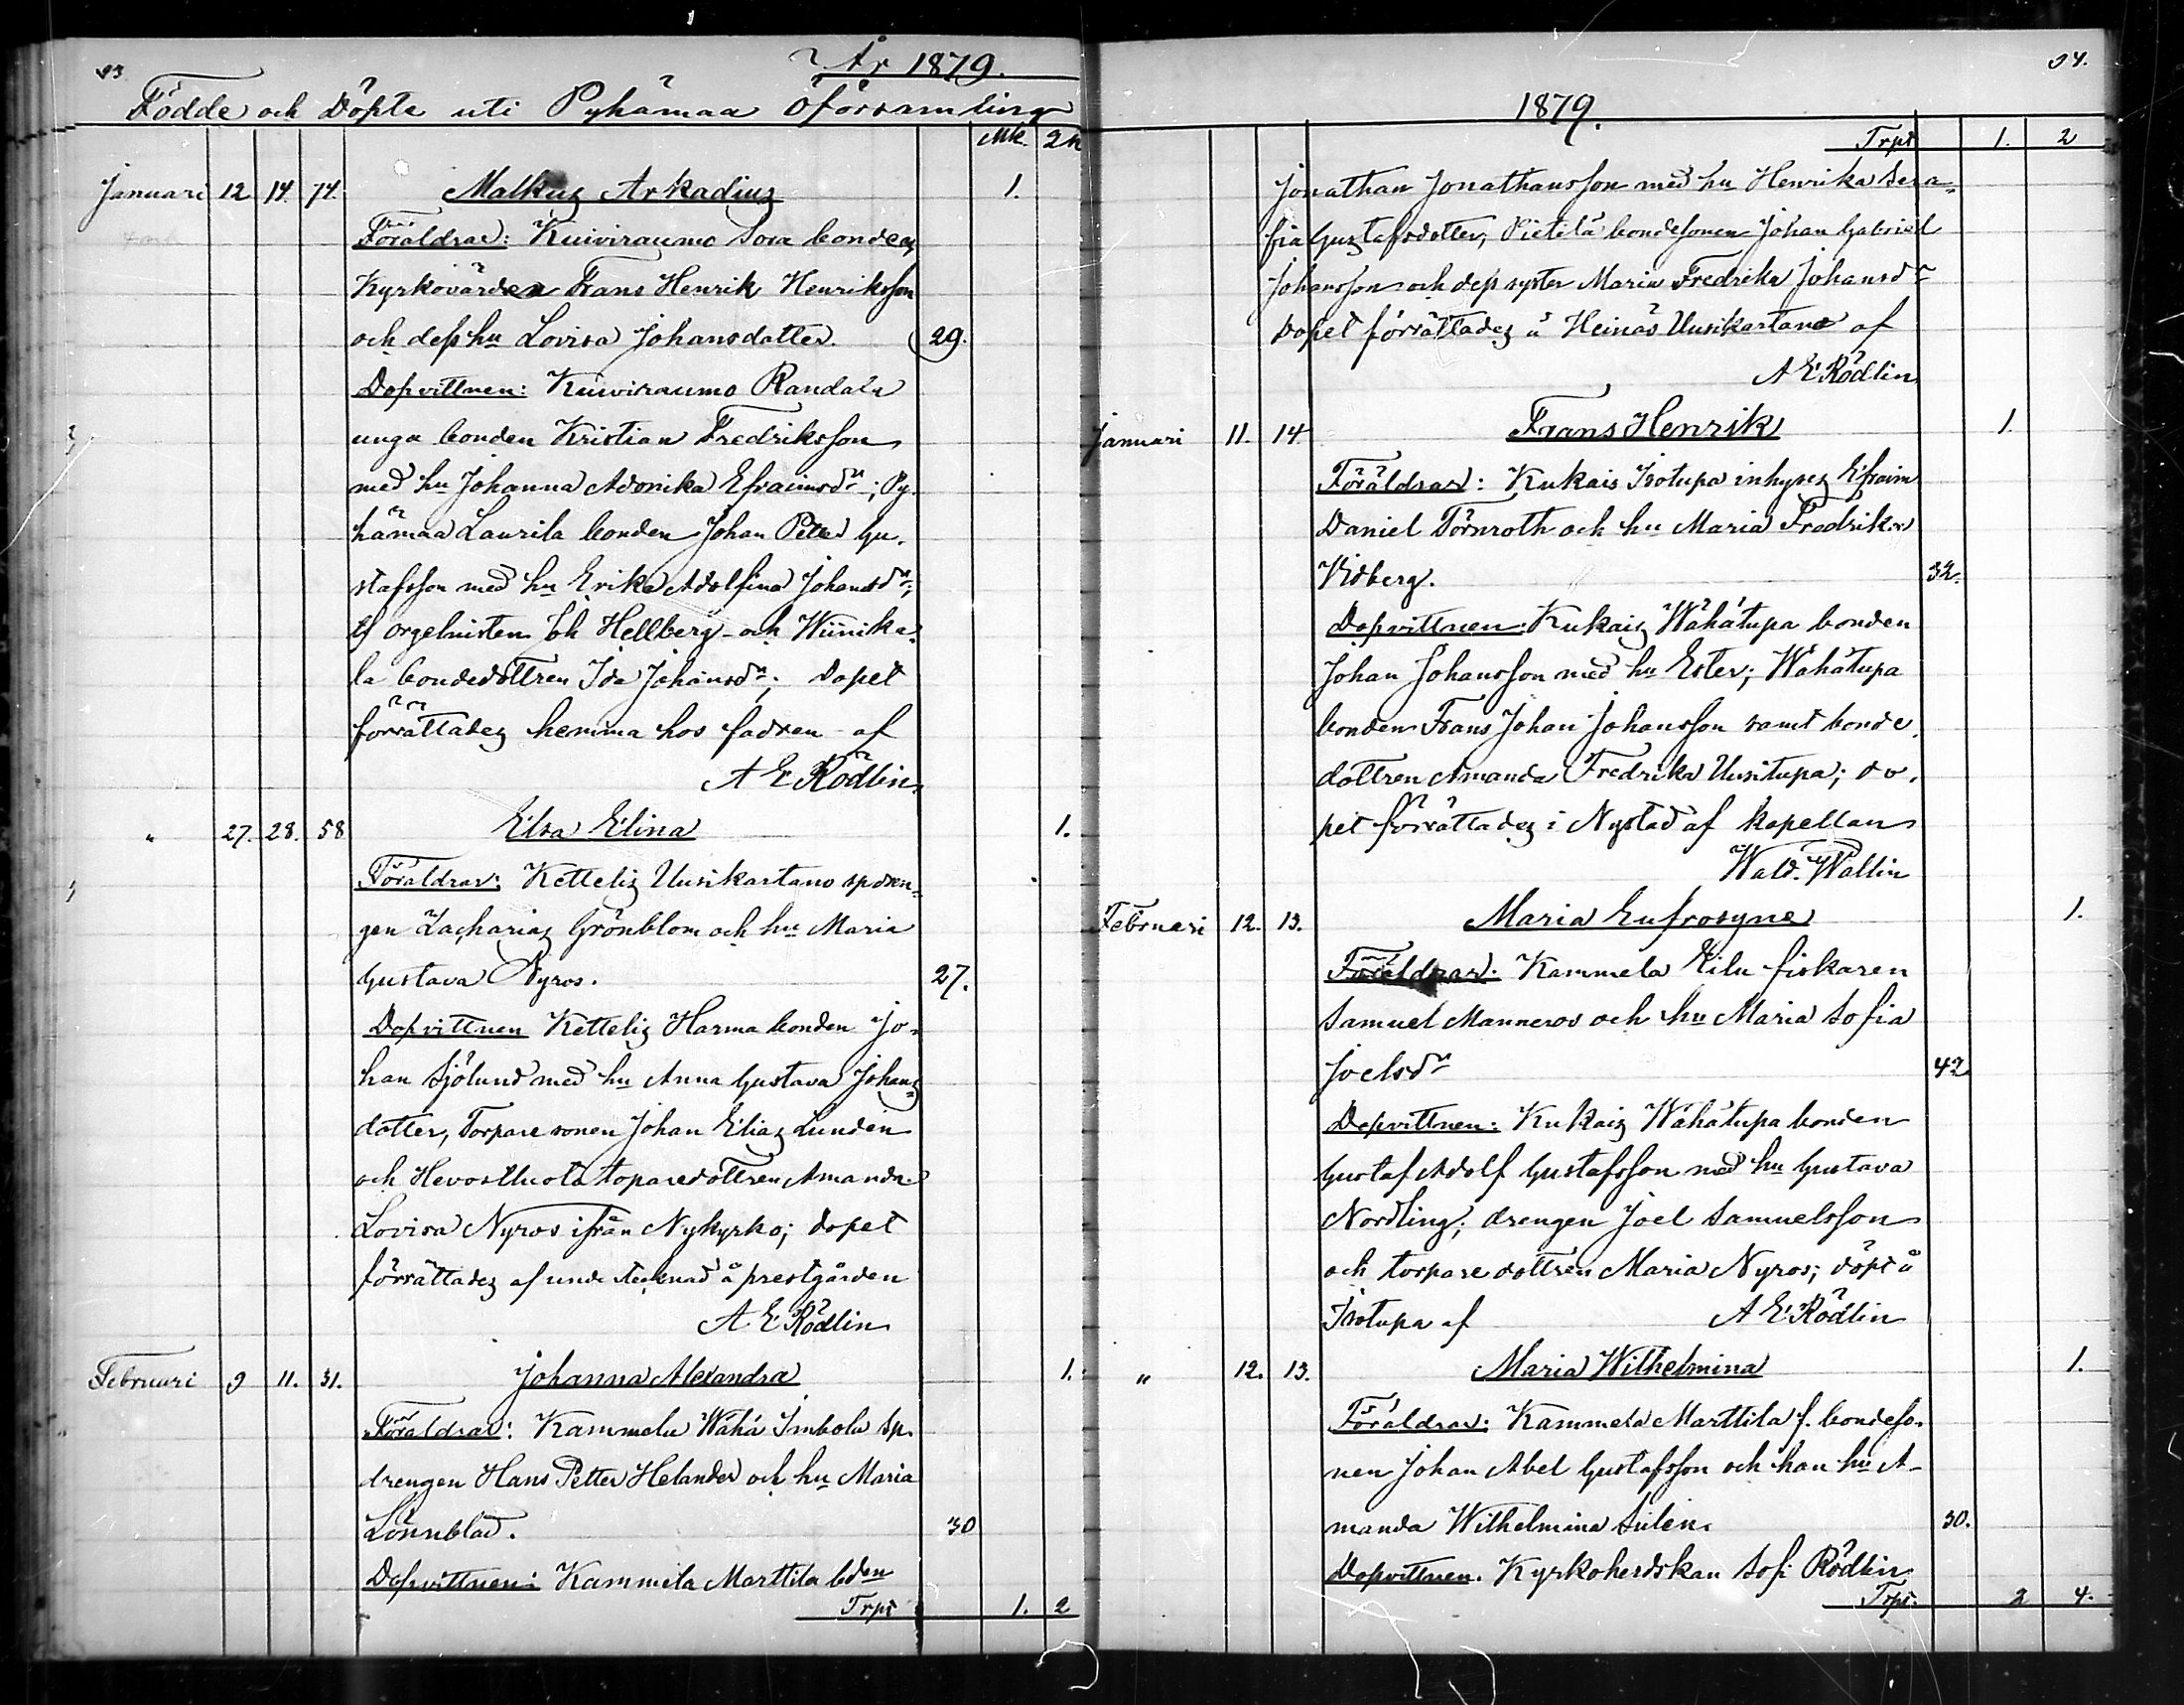 93
År 1879.
Födde och Döpte uti Pyhämaa församling
Mk. Qk
Januari 12 14. 74. Malkus Arkadius 1.
Föräldrar: Kuiviraumo Sora bonden,
Kyrkovärden Frans Henrik Henriksson
och dess hu Lovisa Johansdotter. 29.
Dopvittnen: Kuiviraumo Randala
unga bonden Kristian Fredriksson
med hu Johanna Adonika Efraimsdr; Py-
hämaa Laurila bonden Johan Petter Gu-
stafsson med hu Erika Adolfina Johansdr;
orgelnisten Joh Hellberg och Winnika-
la bondedottren Ida Johansdr; Dopet
förrättades hemma hos fadren af
A E Rödlin.
" 27. 28. 58 Elsa Elina 1.
Föräldrar: Kettelis Uusikartano spdren-
gen Zacharias Grönblom och hu Maria
Gustava Nyros. 27.
Dopvittnen Kettelis Harma bonden Jo-
han Sjölund med hu Anna Gustava Johans
dotter, Torparesonen Johan Elias Lundén
och toparedottren Amanda
Lovisa Nyros ifrån Nykyrko; dopet
förrättades af undertecknad å prestgården
A E Rödlin
Februari 9 11. 31. Johanna Alexandra 1.
Föräldrar: Kammela Wähä Imbola sp.
drengen Hans Petter Helander och hu Maria
Lönnblad. 30
Dopvittnen: Kammela Marttila bden
Trpt 1. 2
94.
1879.
Trpt 1. 2
Jonathan Jonathansson med hu Henrika Sera-
fia Gustafsdotter, Pietilä bondesonen Johan Gabriel
Johansson och dess syster Maria Fredrika Johansdr
Dopet förrättades å Heinäs Uusikartano af
A E Rödlin
Januari 11. 14 Frans Henrik 1.
Föräldrar: Kukais Isotupa inhyses Efraim
Daniel Törnroth och hu Maria Fredrika
Vidberg. 32.
Dopvittnen: Kukais Wähätupa bonden
Johan Johansson med hu Ester; Wähätupa
bonden Frans Johan Johansson samt bonde
dottren Amanda Fredrika Uusitupa; do-
pet förrättades i Nystad af kapellan
Wald. Wallin
Februari 12. 13. Maria Eufrosyne 1.
Föräldrar. Kammela Kilu fiskaren
Samuel Manneros och hu Maria Sofia
Joelsdr 42
Dopvittnen: Kukais Wähätupa bonden
Gustaf Adolf Gustafsson med hu Gustava
Nordling; drengen Joel Samuelsson
och torpare dottren Maria Nyros; döpt å
Isotupa af A E Rödlin
" 12. 13. Maria Wilhelmina 1.
Föräldrar: Kammela Marttila f. bondeso-
nen Johan Abel Gustafsson och han hu A-
manda Wilhelmina Sulen. 30.
Dopvittnen. Kyrkoherdskan Sofi Rödlin
Trpt. 2 4.